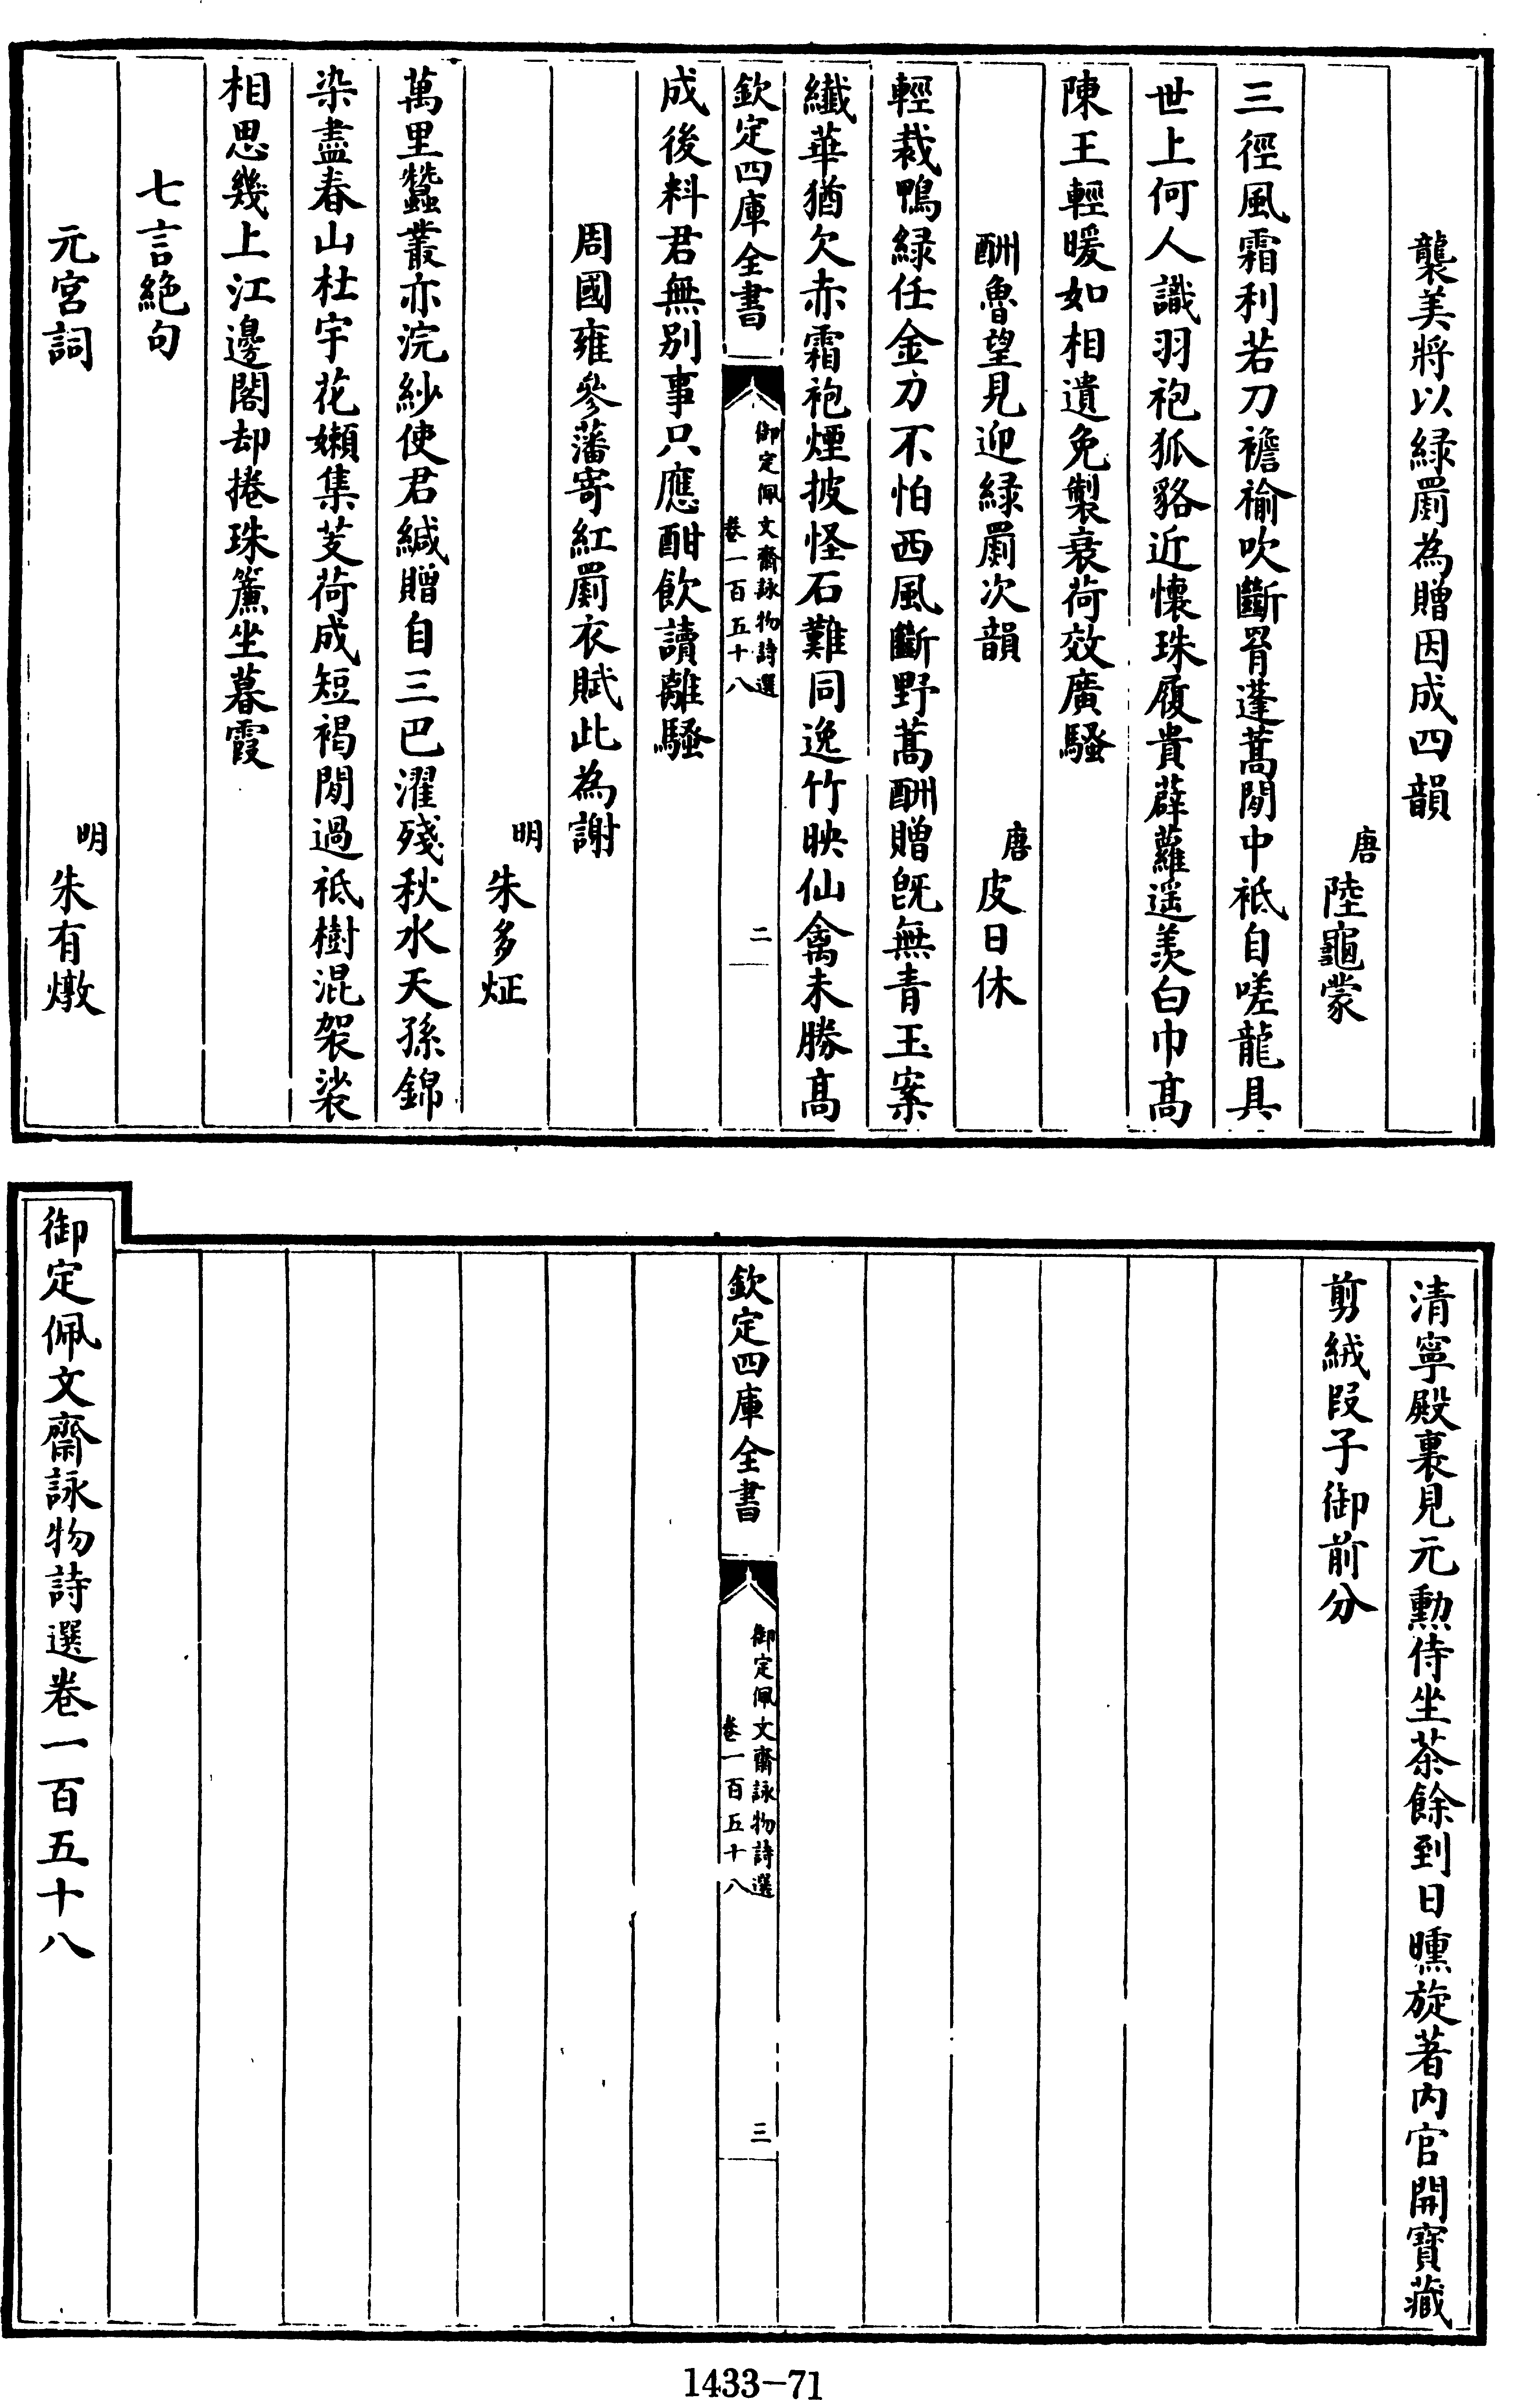 襲美將以綠罽為贈因成四韻
唐陸龜蒙
三徑風霜利若刀襜褕吹斷罥蓬蒿閒中袛自嗟龍具
世上何人識羽袍狐貉近懷珠履貴薜蘿遥羨白巾髙
陳王輕暖如相遺免製衰荷效廣騷
酬魯望見迎綠罽次韻
唐皮日休
輕裁鴨綠任金刀不怕西風斷野蒿酬贈旣無青玉案
纖華猶欠赤霜袍煙披怪石難同逸竹映仙禽未勝髙
欽定四庫全書
御定佩文齋詠物詩選
卷一百五十八
二
成後料君無别事只應酣飲讀離騷
周國雍參藩寄紅罽衣賦此為謝
明朱多炡
萬里蠶叢亦浣紗使君緘贈自三巴濯殘秋水天孫錦
染盡春山杜宇花嬾集芰荷成短褐閒過袛樹混袈裟
相思幾上江邊閣却捲珠簾坐暮霞
七言絶句
元宮詞
明朱有燉
清寧殿裏見元勳侍坐茶餘到日曛旋著内官開寶藏
剪絨段子御前分
欽定四庫全書
御定佩文齋詠物詩選
卷一百五十八
三
御定佩文齋詠物詩選卷一百五十八
1433-71